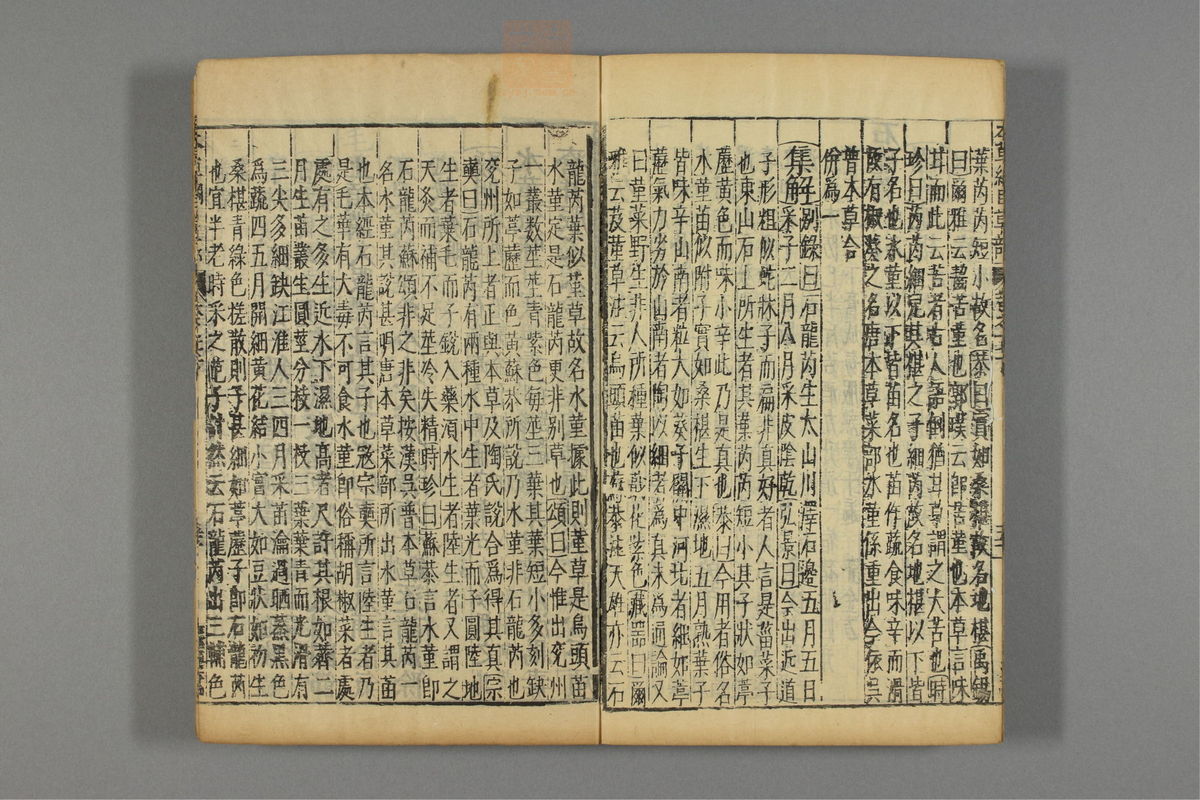 葉芮芮短小故名恭曰實如桑椹故名地椹禹錫
曰爾雅云齧苦菫也郭璞云卽苦菫也本草言味
甘而此云苦者古人語倒猶甘草謂之大苦也時
珍曰芮芮細皃其椹之子細芮故名地椹以下皆
子名也水菫以下皆苗名也苗作蔬食味辛而滑
故有椒葵之名唐本草菜部水菫係重出今依吳
普本草合
併爲一
集解別錄曰石龍芮生太山川澤石邊五月五日
采子二月八月采皮陰乾弘景曰今出近道
子形粗似蛇牀子而扁非真好者人言是蓄菜子
也東山石上所生者其葉芮芮短小其子狀如葶
藶黃色而味小辛此乃是真也恭曰今用者俗名
水菫苗似附子實如桑椹生下濕地五月熟葉子
皆味辛山南者粒大如葵子關中河北者細如葶
藶氣力劣於山南者陶以細者爲真未爲通論又
曰菫菜野生非人所種葉似蕺花紫色藏器曰爾
雅云芨菫草注云烏頭苗也蘇恭注天雄亦云石
龍芮葉似菫草故名水菫據此則菫草是烏頭苗
水菫定是石龍芮更非別草也頌曰今惟出兗州
一叢數莖莖青紫色每莖三葉其葉短小多刻缺
子如葶藶而色黃蘇恭所說乃水菫非石龍芮也
兗州所上者正與本草及陶氏說合爲得其真宗
奭曰石龍芮有兩種水中生者葉光而子圓陸地
生者葉毛而子銳入藥須水生者陸生者又謂之
天灸而補不足莖冷失精時珍曰蘇恭言水菫卽
石龍芮蘇頌非之非矣按漢吳普本草石龍芮一
名水菫其說甚明唐本草菜部所出水菫言其苗
也本經石龍芮言其子也宼宗奭所言陸生者乃
是毛菫有大毒不可食水菫卽俗稱胡椒菜者處
處有之多生近水下濕地高者尺許其根如薺二
月生苗叢生圓莖分枝一枝三葉葉青而光滑有
三尖多細缺江淮人三四月采苗瀹過晒蒸黑色
爲蔬四五月開細黃花結小實大如豆狀如初生
桑椹青綠色搓散則子甚細如葶藶子卽石龍芮
也宜半老時采之范子計然云石龍芮出三輔色